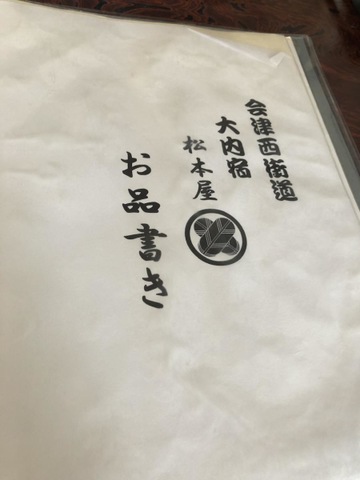 会津西街道
大内宿
松本屋
お品書き